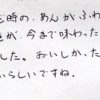 時の、あんがふわ
が、今まで味わった
した。おいしかった
いらしいですね。